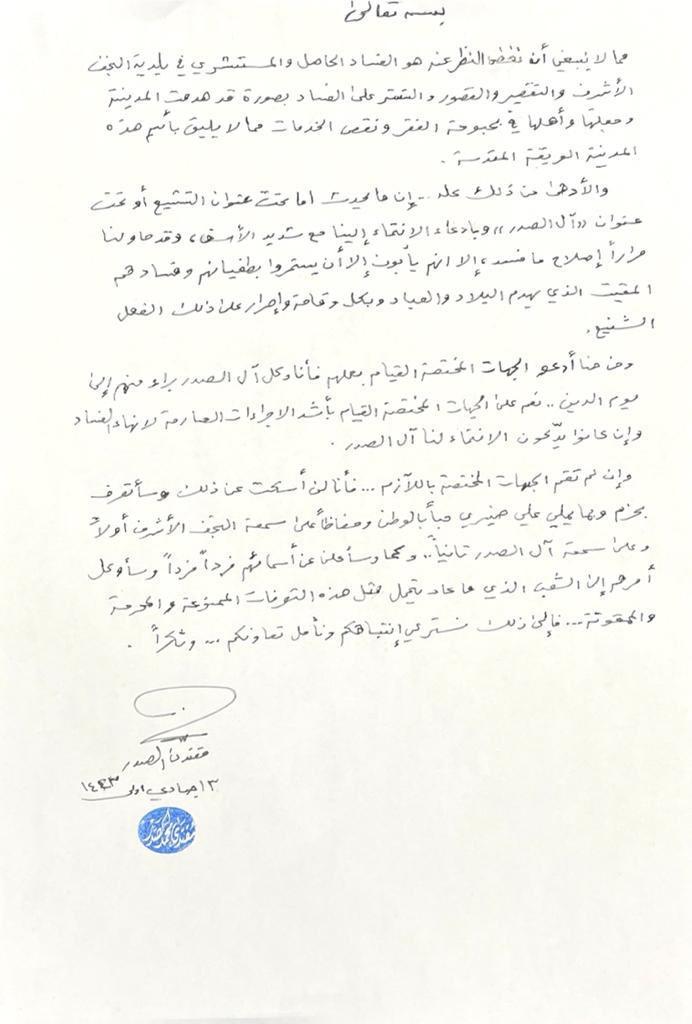 بسمه تعالى
مما لا ينبغي أن نغض النظر عنه هو الفساد الحاصل والمستشري في بلدية النجف
الأشرف والتقصير والقصور والتستر على الفساد بصورة قد هدمت المدينة
وجعلتها وأهلها في بحبوحة الفقر ونقص الخدمات مما لا يليق بأسم هذه
المدينة العريقة المقدسة .
والأدهى من ذلك كله .. إن ما يحدث اما تحت عنوان التشيع أو تحت
عنوان «آل الصدر» وبادعاء الانتماء إلينا مع شديد الأسف، وقد حاولنا
مراراً إصلاح ما فسد، إلا انهم يأبون إلا أن يستمروا بطغيانهم وفسادهم
المقيت الذي يهدم البلاد والعباد وبكل وقاحة وإصرار على ذلك الفعل
الشنيع.
ومن هنا أدعو الجهات المختصة القيام بعملهم فأنا وكل آل الصدر براء منهم إلى
يوم الدين .. نعم على الجهات المختصة القيام بأشد الاجراءات الصارمة لانهاء الفساد
وإن كانوا يدّعون الانتماء لنا آل الصدر .
وإن لم تقم الجهات المختصة باللازم ... فأنا لن أسكت عن ذلك وسأتصرف
بحزم وبما يملي علي ضميري حباً بالوطن وحفاظاً على سمعة النجف الأشرف أولاً
وعلى سمعة آل الصدر ثانياً .. وكما وسأعلن عن أسمائهم فرداً فرداً وسأوكل
أمرهم إلى الشعب الذي ما عاد يتحمل مثل هذه التصرفات الممنوعة والمحرمة
والممقوتة ... فإلى ذلك نسترعي إنتباهكم ونأمل تعاونكم ... وشكراً .
مقتدى الصدر
١٣ جمادي اولى ١٤٤٣
مقتدى محمد الصدر